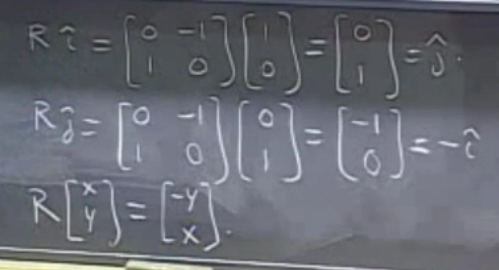 R î = [0 -1; 1 0] [1; 0] = [0; 1] = ĵ.
R ĵ = [0 -1; 1 0] [0; 1] = [-1; 0] = -î
R [x; y] = [-y; x].